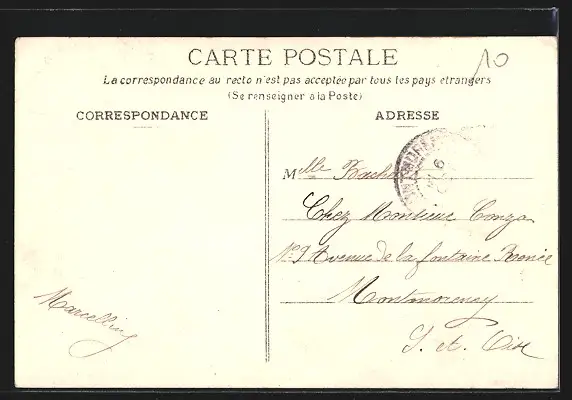 CARTE POSTALE
10
La correspondance au recto n'est pas acceptée par tous les pays étrangers
(Se renseigner à la Poste)
CORRESPONDANCE
ADRESSE
Mlle
Chez Monsieur Conza
N° 9 Avenue de la fontaine Renée
Montmorency
S. et. Oise
Marcelline